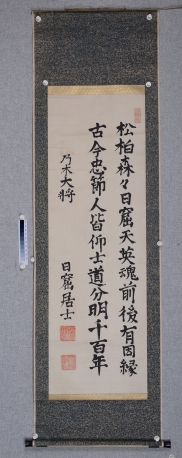 松柏森々日窟天英魂前後有因縁
古今忠節人皆仰士道分明千百年
乃木大将
日窟居士